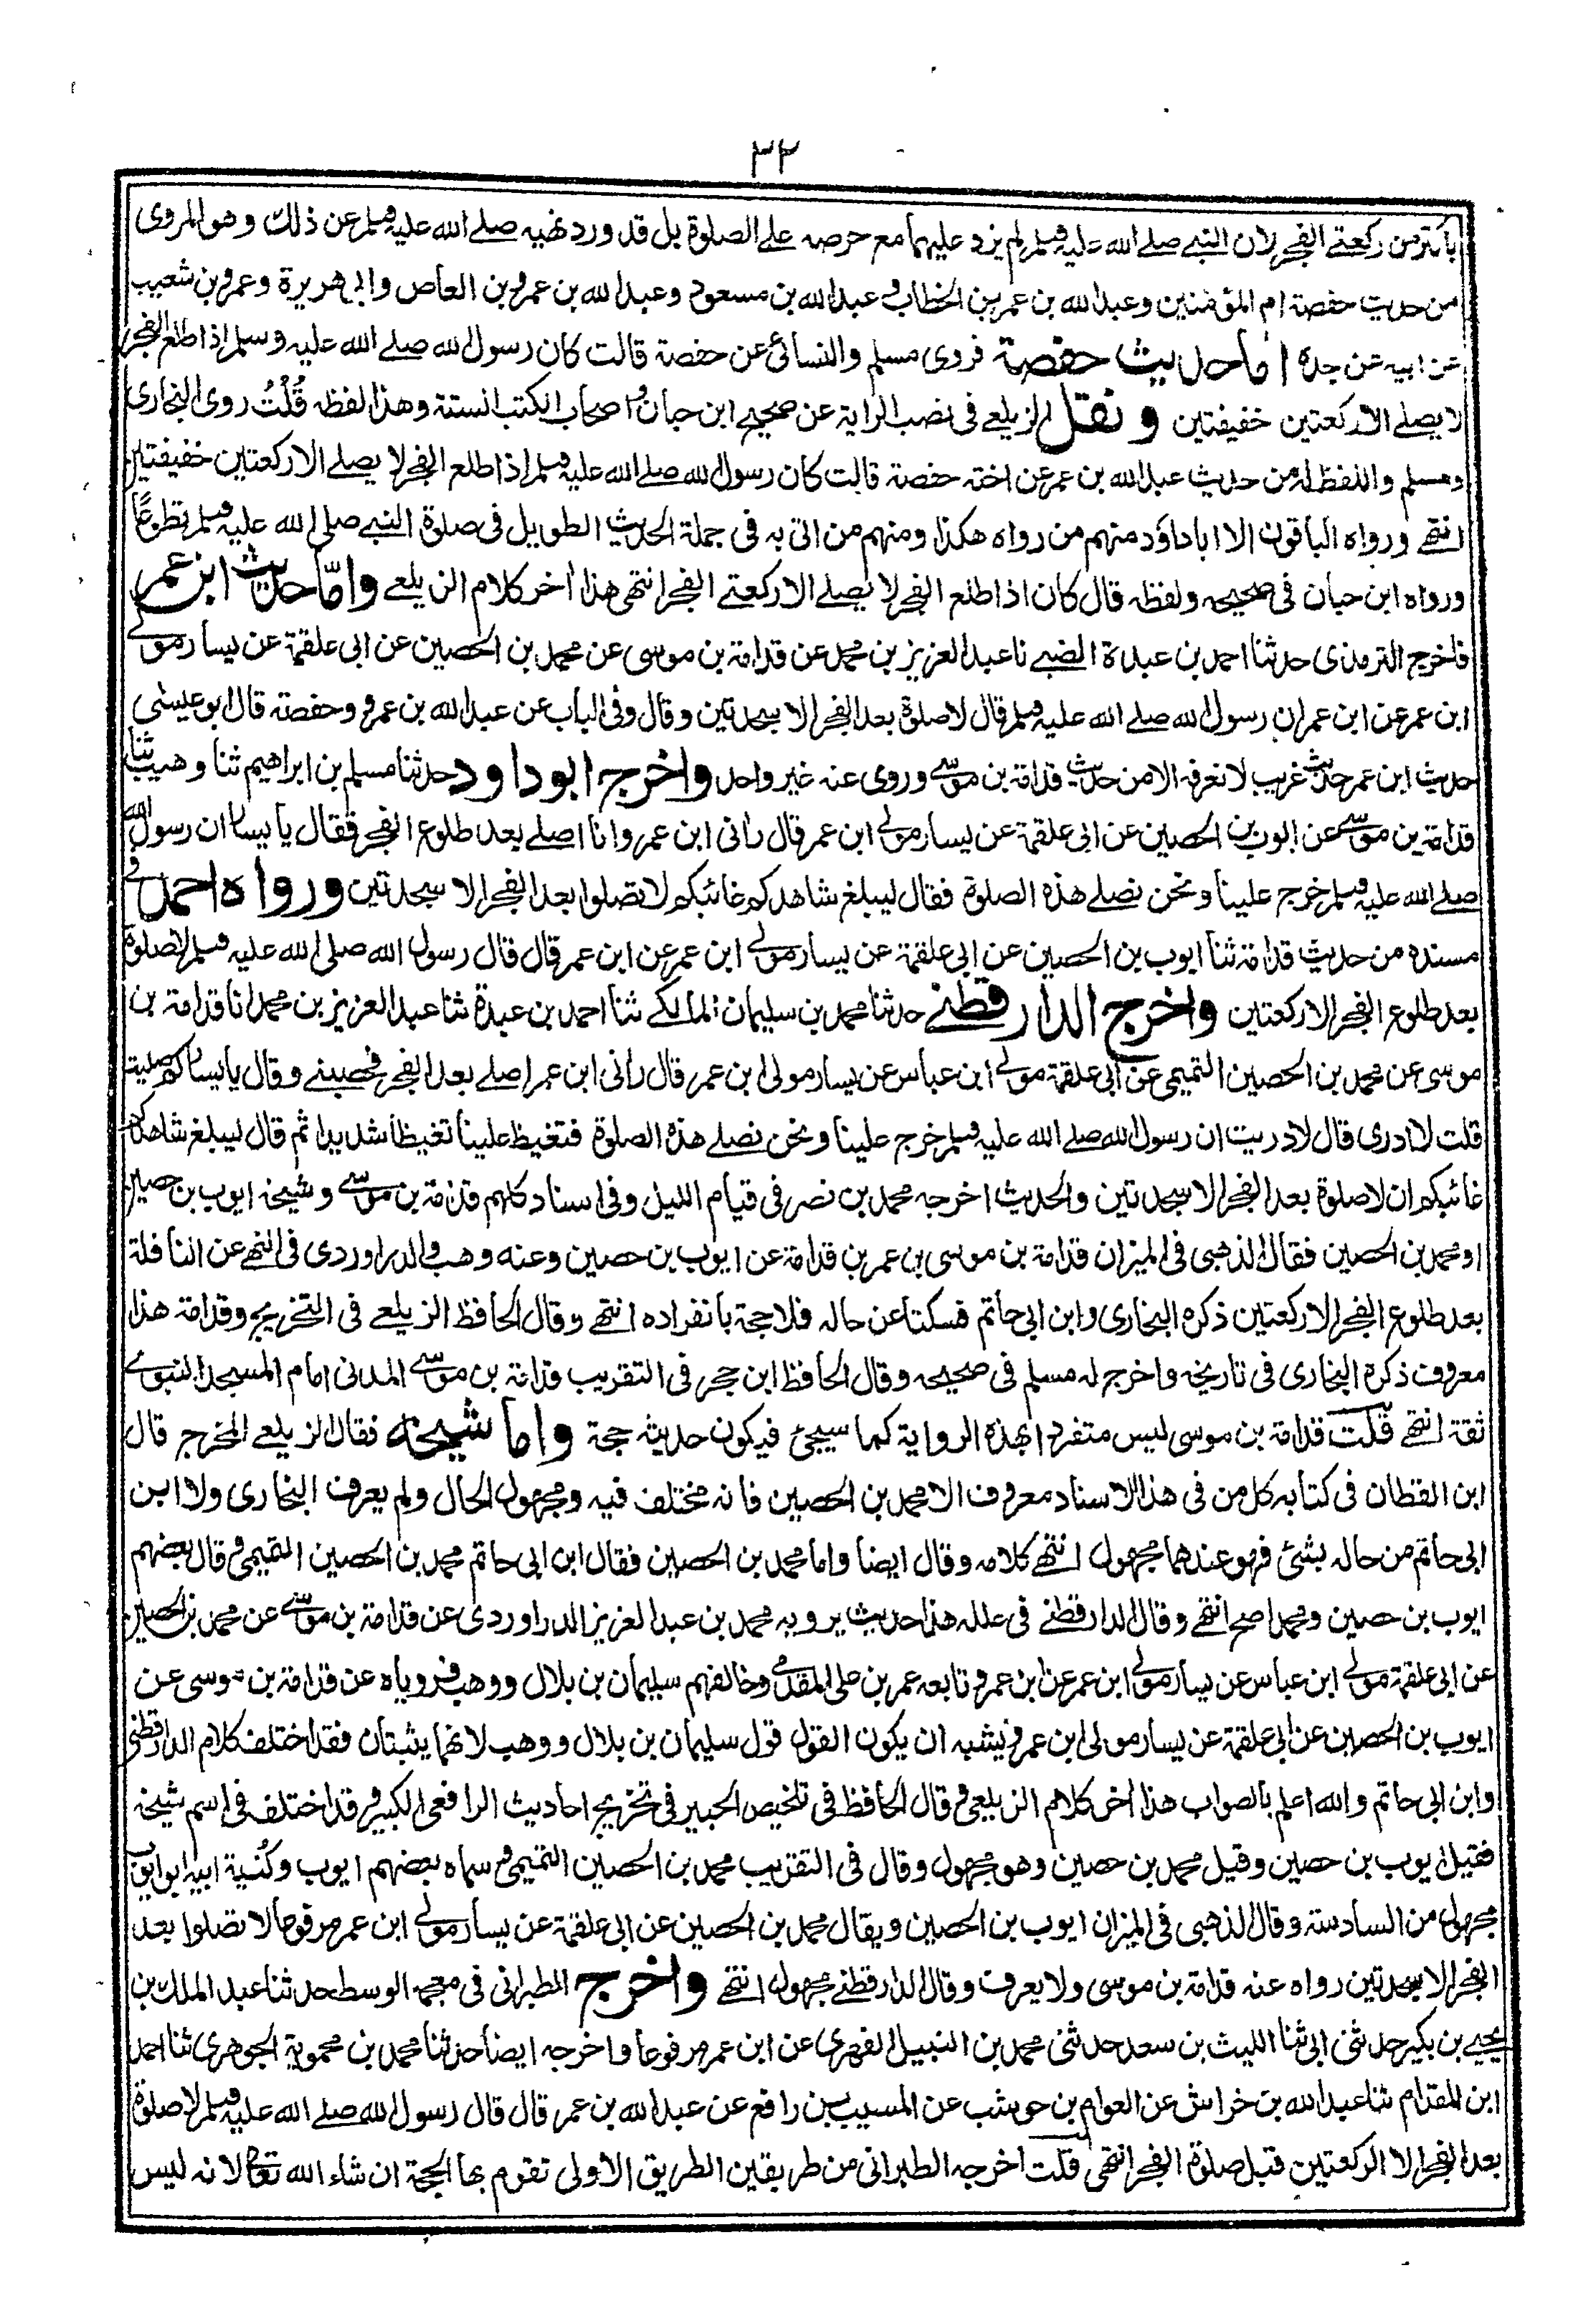 ٣٢
باكثر من ركعتي الفجر لان النبي صلے الله عليه وسلم لم يزد عليهما مع حرصه علے الصلوة بل قد ورد نهيه صلے الله عليه وسلم عن ذلك وهو المروى
من حديث حفصة ام المؤمنين وعبد الله بن عمر بن الخطاب وعبد الله بن مسعود وعبد الله بن عمرو بن العاص وابى هريرة وعمرو بن شعيب
عن ابيه عن جده اما حديث حفصة فروى مسلم والنسائى عن حفصة قالت كان رسول الله صلے الله عليه وسلم اذا طلع الفجر
لا يصلے الا ركعتين خفيفتين ونقل الزيلعے فى نصب الراية عن صحيح ابن حبان واصحاب الكتب الستة وهذا لفظه قُلْتُ روى البخارى
ومسلم واللفظ له من حديث عبد الله بن عمر عن اخته حفصة قالت كان رسول الله صلے الله عليه وسلم اذا طلع الفجر لا يصلے الا ركعتين خفيفتين
انتهے ورواه الباقون الا ابا داؤد منهم من رواه هكذا ومنهم من اتى به فى جملة الحديث الطويل فى صلوة النبے صلى الله عليه وسلم تطوعًا
ورواه ابن حبان فى صحيحه ولفظه قال كان اذا طلع الفجر لا يصلے الا ركعتے الفجر انتهى هذا اخر كلام الزيلعے وامّا حديث ابن عمر
فاخرج الترمذى حدثنا احمد بن عبدة الضبے نا عبد العزيز بن محمد عن قدامة بن موسى عن محمد بن الحصين عن ابى علقمة عن يسار مولے
ابن عمر عن ابن عمر ان رسول الله صلے الله عليه وسلم قال لا صلوة بعد الفجر الا سجدتين وقال وفى الباب عن عبد الله بن عمرو وحفصة قال ابو عيسٰى
حديث ابن عمر حديث غريب لا نعرفه الا من حديث قدامة بن موسے وروى عنه غير واحد واخرج ابو داود حدثنا مسلم بن ابراهيم ثنا وهيب ثنا
قدامة بن موسے عن ايوب بن الحصين عن ابى علقمة عن يسار مولے ابن عمر قال رانى ابن عمر وانا اصلے بعد طلوع الفجر فقال يا يسار ان رسول الله
صلے الله عليه وسلم خرج علينا ونحن نصلے هذه الصلوة فقال ليبلغ شاهدكم غائبكم لا تصلوا بعد الفجر الا سجدتين ورواه احمد فى
مسنده من حديث قدامة ثنا ايوب بن الحصين عن ابى علقمة عن يسار مولے ابن عمر عن ابن عمر قال قال رسول الله صلى الله عليه وسلم لا صلوة
بعد طلوع الفجر الا ركعتين واخرج الدارقطنے حدثنا محمد بن سليمان المالكے ثنا احمد بن عبدة ثنا عبد العزيز بن محمد انا قدامة بن
موسى عن محمد بن الحصين التميمى عن ابى علقمة مولے ابن عباس عن يسار مولى ابن عمر قال رانى ابن عمر اصلے بعد الفجر فحصبنے وقال يا يسار كم صليت
قلت لا ادرى قال لا دريت ان رسول الله صلے الله عليه وسلم خرج علينا ونحن نصلے هذه الصلوة فتغيظ علينا تغيظا شديدا ثم قال ليبلغ شاهدكم
غائبكم ان لا صلوة بعد الفجر الا سجدتين والحديث اخرجه محمد بن نصر فى قيام الليل وفى اسناد كلهم قدامة بن موسے وشيخه ايوب بن حصين
او محمد بن الحصين فقال الذهبى فى الميزان قدامة بن موسى بن عمر بن قدامة عن ايوب بن حصين وعنه وهب والدراوردى فى النهے عن النافلة
بعد طلوع الفجر الا ركعتين ذكره البخارى وابن ابى حاتم فسكتا عن حاله فلا حجة بانفراده انتهے وقال الحافظ الزيلعے فى التخريج وقدامة هذا
معروف ذكره البخارى فى تاريخه واخرج له مسلم فى صحيحه وقال الحافظ ابن حجر فى التقريب قدامة بن موسے المدنى امام المسجد النبوے
ثقة انتهے قلت قدامة بن موسى ليس متفردا بهذه الرواية كما سيجئ فيكون حديثه حجة واما شيخه فقال الزيلعے المخرج قال
ابن القطان فى كتابه كل من فى هذا الاسناد معروف الا محمد بن الحصين فانه مختلف فيه ومجهول الحال ولم يعرف البخارى ولا ابن
ابى حاتم من حاله بشئ فهو عندهما مجهول انتهے كلامه وقال ايضا واما محمد بن الحصين فقال ابن ابى حاتم محمد بن الحصين التميمى وقال بعضهم
ايوب بن حصين ومحمد اصح انتهے وقال الدارقطنے فى علله هذا حديث يرويه محمد بن عبد العزيز الدراوردى عن قدامة بن موسے عن محمد بن الحصين
عن ابى علقمة مولے ابن عباس عن يسار مولے ابن عمر عن ابن عمر وتابعه عمر بن على المقدمے وخالفهم سليمان بن بلال ووهب فروياه عن قدامة بن موسى عن
ايوب بن الحصين عن ابى علقمة عن يسار مولى ابن عمر ويشبه ان يكون القول قول سليمان بن بلال ووهب لانهما يثبتان فقد اختلف كلام الدارقطنى
وابن ابى حاتم والله اعلم بالصواب هذا اخر كلام الزيلعى وقال الحافظ فى تلخيص الحبير فى تخريج احاديث الرافعى الكبير وقد اختلف فى اسم شيخه
فقيل ايوب بن حصين وقيل محمد بن حصين وهو مجهول وقال فى التقريب محمد بن الحصين التميمى وسماه بعضهم ايوب وكُنية ابيه ابو ايوب
مجهول من السادسة وقال الذهبى فى الميزان ايوب بن الحصين ويقال محمد بن الحصين عن ابى علقمة عن يسار مولے ابن عمر مرفوعا لا تصلوا بعد
الفجر الا سجدتين رواه عنه قدامة بن موسى ولا يعرف وقال الدارقطنے مجهول انتهے واخرج الطبرانى فى معجمه الوسط حدثنا عبد الملك بن
يحيے بن بكير حدثنى ابى ثنا الليث بن سعد حدثنى محمد بن النبيل الفهرى عن ابن عمر مرفوعا واخرجه ايضا حدثنا محمد بن محموية الجوهرى ثنا احمد
ابن المقدام ثنا عبد الله بن خراش عن العوام بن حوشب عن المسيب بن رافع عن عبد الله بن عمر قال قال رسول الله صلے الله عليه وسلم لا صلوة
بعد الفجر الا الركعتين قبل صلوة الفجر انتهى قلت اخرجه الطبرانى من طريقين الطريق الاولى تقوم بها الحجة ان شاء الله تعالى لانه ليس